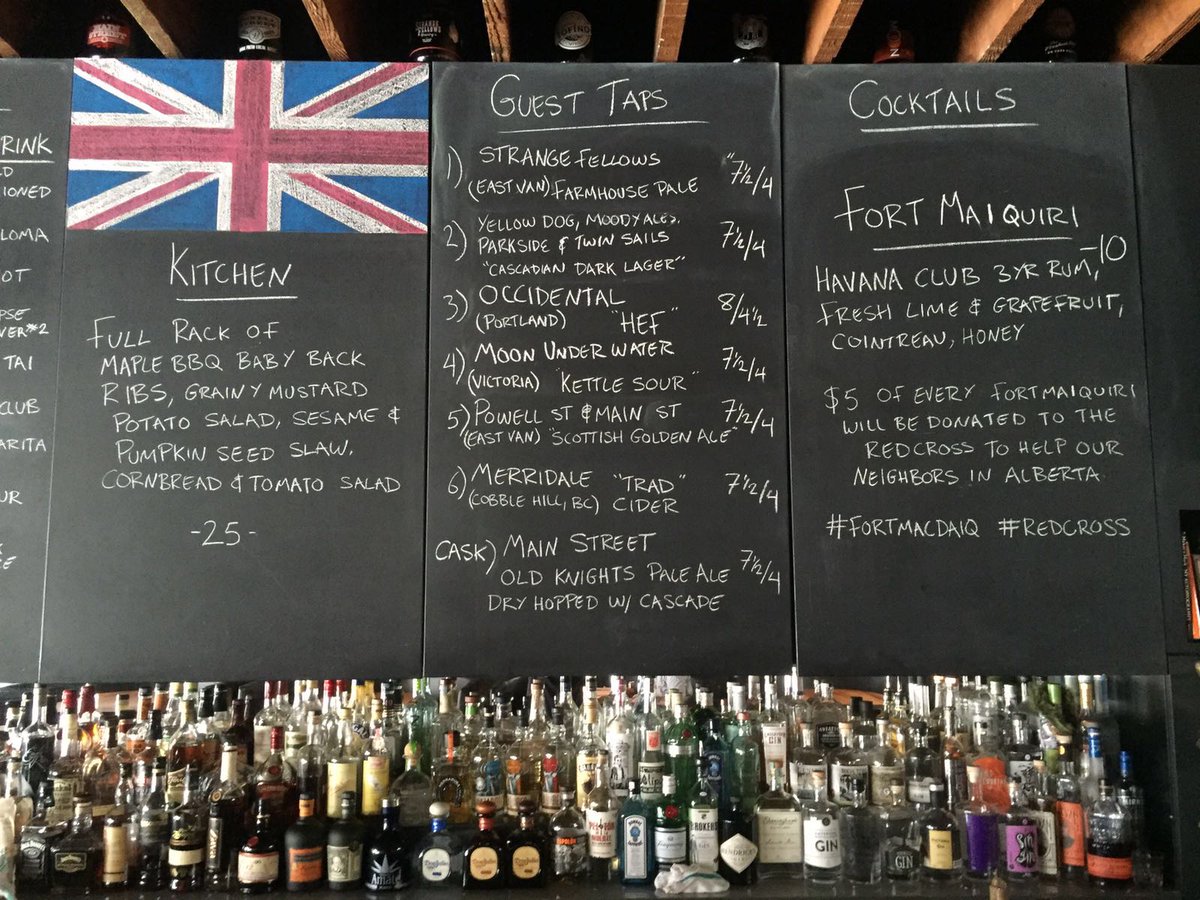 RINK
IONED
LOMA
OT
PSE
VER*2
TAI
CLUB
ARITA
UR
KITCHEN
FULL RACK OF
MAPLE BBQ BABY BACK
RIBS, GRAINY MUSTARD
POTATO SALAD, SESAME &
PUMPKIN SEED SLAW,
CORNBREAD & TOMATO SALAD
-25-
GUEST TAPS
1) STRANGE FELLOWS
(EAST VAN) FARMHOUSE PALE 7½/4
2) YELLOW DOG, MOODY ALES,
PARKSIDE & TWIN SAILS 7½/4
"CASCADIAN DARK LAGER"
3) OCCIDENTAL 8/4½
(PORTLAND) "HEF"
4) MOON UNDER WATER 7½/4
(VICTORIA) "KETTLE SOUR"
5) POWELL ST & MAIN ST 7½/4
(EAST VAN) "SCOTTISH GOLDEN ALE"
6) MERRIDALE "TRAD" 7½/4
(COBBLE HILL, BC) CIDER
CASK) MAIN STREET
OLD KNIGHTS PALE ALE 7½/4
DRY HOPPED W/ CASCADE
COCKTAILS
FORT MAIQUIRI
-10
HAVANA CLUB 3YR RUM,
FRESH LIME & GRAPEFRUIT,
COINTREAU, HONEY
$5 OF EVERY FORTMAIQUIRI
WILL BE DONATED TO THE
REDCROSS TO HELP OUR
NEIGHBORS IN ALBERTA.
#FORTMACDAIQ #REDCROSS
GIN
BROKER'S
HENDRICK'S
GIN
GIN